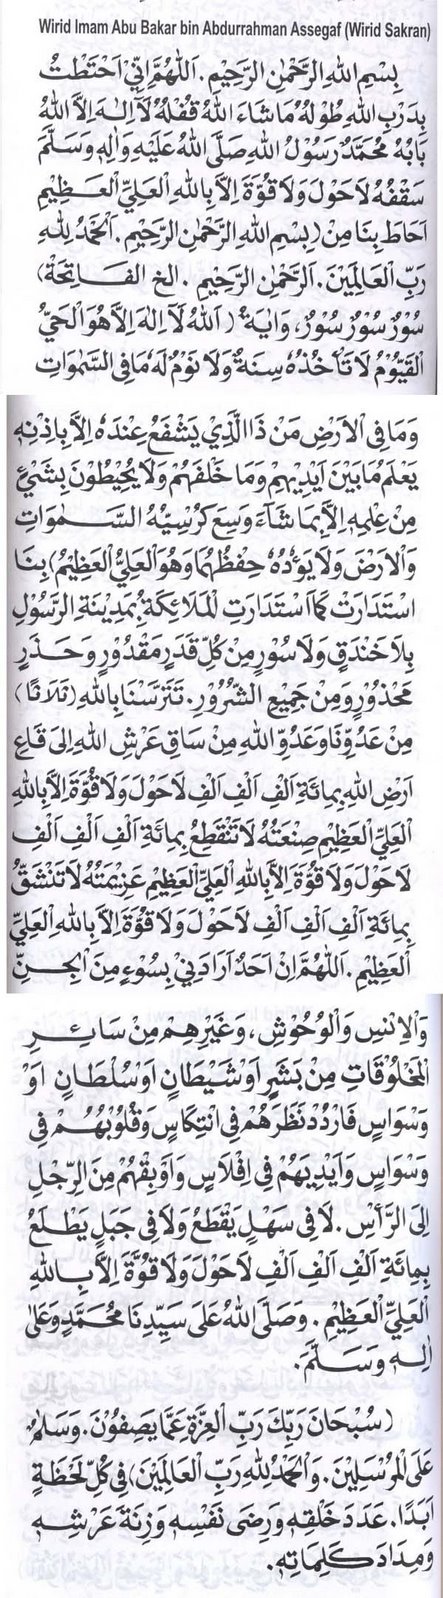 Wirid Imam Abu Bakar bin Abdurrahman Assegaf (Wirid Sakran)
بِسْمِ اللهِ الرَّحْمٰنِ الرَّحِيْمِ. اَللّٰهُمَّ اِنِّيْ احْتَطْتُ
بِدَرْبِ اللهِ طُوْلُهُ مَا شَاءَ اللهُ قُفْلُهُ لَآ اِلٰهَ اِلَّا اللهُ
بَابُهُ مُحَمَّدٌ رَسُوْلُ اللهِ صَلَّى اللهُ عَلَيْهِ وَاٰلِهِ وَسَلَّمَ
سَقْفُهُ لَاحَوْلَ وَلَا قُوَّةَ اِلَّا بِاللهِ الْعَلِيِّ الْعَظِيْمِ
اَحَاطَ بِنَا مِنْ (بِسْمِ اللهِ الرَّحْمٰنِ الرَّحِيْمِ. اَلْحَمْدُ لِلّٰهِ
رَبِّ الْعَالَمِيْنَ. اَلرَّحْمٰنِ الرَّحِيْمِ. الخ الفَـاتِحَة)
سُوْرٌ سُوْرٌ سُوْرٌ، وَاٰيَةُ (اَللهُ لَآ اِلٰهَ اِلَّا هُوَ الْحَيُّ
الْقَيُّوْمُ لَا تَأْخُذُهُ سِنَةٌ وَلَا نَوْمٌ لَهُ مَا فِى السَّمٰوَاتِ
وَمَا فِى الْاَرْضِ مَنْ ذَا الَّذِيْ يَشْفَعُ عِنْدَهُ اِلَّا بِاِذْنِهِ
يَعْلَمُ مَا بَيْنَ اَيْدِيْهِمْ وَمَا خَلْفَهُمْ وَلَا يُحِيْطُوْنَ بِشَيْئٍ
مِنْ عِلْمِهِ اِلَّا بِمَا شَآءَ وَسِعَ كُرْسِيُّهُ السَّمٰوَاتِ
وَالْاَرْضَ وَلَا يَؤُدُهُ حِفْظُهُمَا وَهُوَ الْعَلِيُّ الْعَظِيْمُ) بِنَا
اسْتَدَارَتْ كَمَا اسْتَدَارَتِ الْمَلَائِكَةُ بِمَدِيْنَةِ الرَّسُوْلِ
بِلَا خَنْدَقٍ وَلَا سُوْرٍ مِنْ كُلِّ قَدَرٍ مَقْدُوْرٍ وَحَذَرٍ
مَحْذُوْرٍ وَمِنْ جَمِيْعِ الشُّرُوْرِ. تَتَرَّسْنَا بِاللهِ (ثَلَاثًا)
مِنْ عَدُوِّنَا وَعَدُوِّ اللهِ مِنْ سَاقِ عَرْشِ اللهِ اِلَى قَاعِ
اَرْضِ اللهِ بِمِائَةِ اَلْفِ اَلْفِ اَلْفِ لَاحَوْلَ وَلَا قُوَّةَ اِلَّا بِاللهِ
الْعَلِيِّ الْعَظِيْمِ صِنْعَتُهُ لَا تَنْقَطِعُ بِمِائَةِ اَلْفِ اَلْفِ اَلْفِ
لَاحَوْلَ وَلَا قُوَّةَ اِلَّا بِاللهِ الْعَلِيِّ الْعَظِيْمِ عَزِيْمَتُهُ لَا تَنْشَقُّ
بِمِائَةِ اَلْفِ اَلْفِ اَلْفِ لَاحَوْلَ وَلَا قُوَّةَ اِلَّا بِاللهِ الْعَلِيِّ
الْعَظِيْمِ. اَللّٰهُمَّ اِنْ اَحَدٌ اَرَادَنِيْ بِسُوْءٍ مِنَ الْجِنِّ
وَالْاِنْسِ وَالْوُحُوْشِ، وَغَيْرِهِمْ مِنْ سَائِرِ
الْمَخْلُوْقَاتِ مِنْ بَشَرٍ اَوْ شَيْطَانٍ اَوْ سُلْطَانٍ اَوْ
وَسْوَاسٍ فَارْدُدْ نَظَرَهُمْ فِى انْتِكَاسٍ وَقُلُوْبَهُمْ فِى
وَسْوَاسٍ وَاَيْدِيَهُمْ فِى اِفْلَاسٍ وَاَوْبِقْهُمْ مِنَ الرِّجْلِ
اِلَى الرَّأْسِ. لَا فِى سَهْلٍ يَقْطَعُ وَلَا فِى جَبَلٍ يَطْلَعُ
بِمِائَةِ اَلْفِ اَلْفِ اَلْفِ لَاحَوْلَ وَلَا قُوَّةَ اِلَّا بِاللهِ
الْعَلِيِّ الْعَظِيْمِ. وَصَلَّى اللهُ عَلَى سَيِّدِنَا مُحَمَّدٍ وَعَلَى
اٰلِهِ وَسَلَّمَ.
(سُبْحَانَ رَبِّكَ رَبِّ الْعِزَّةِ عَمَّا يَصِفُوْنَ. وَسَلَامٌ
عَلَى الْمُرْسَلِيْنَ. وَالْحَمْدُ لِلّٰهِ رَبِّ الْعَالَمِيْنَ) فِى كُلِّ لَحْظَةٍ
اَبَدًا. عَدَدَ خَلْقِهِ وَرِضَى نَفْسِهِ وَزِنَةَ عَرْشِهِ
وَمِدَادَ كَلِمَاتِهِ.